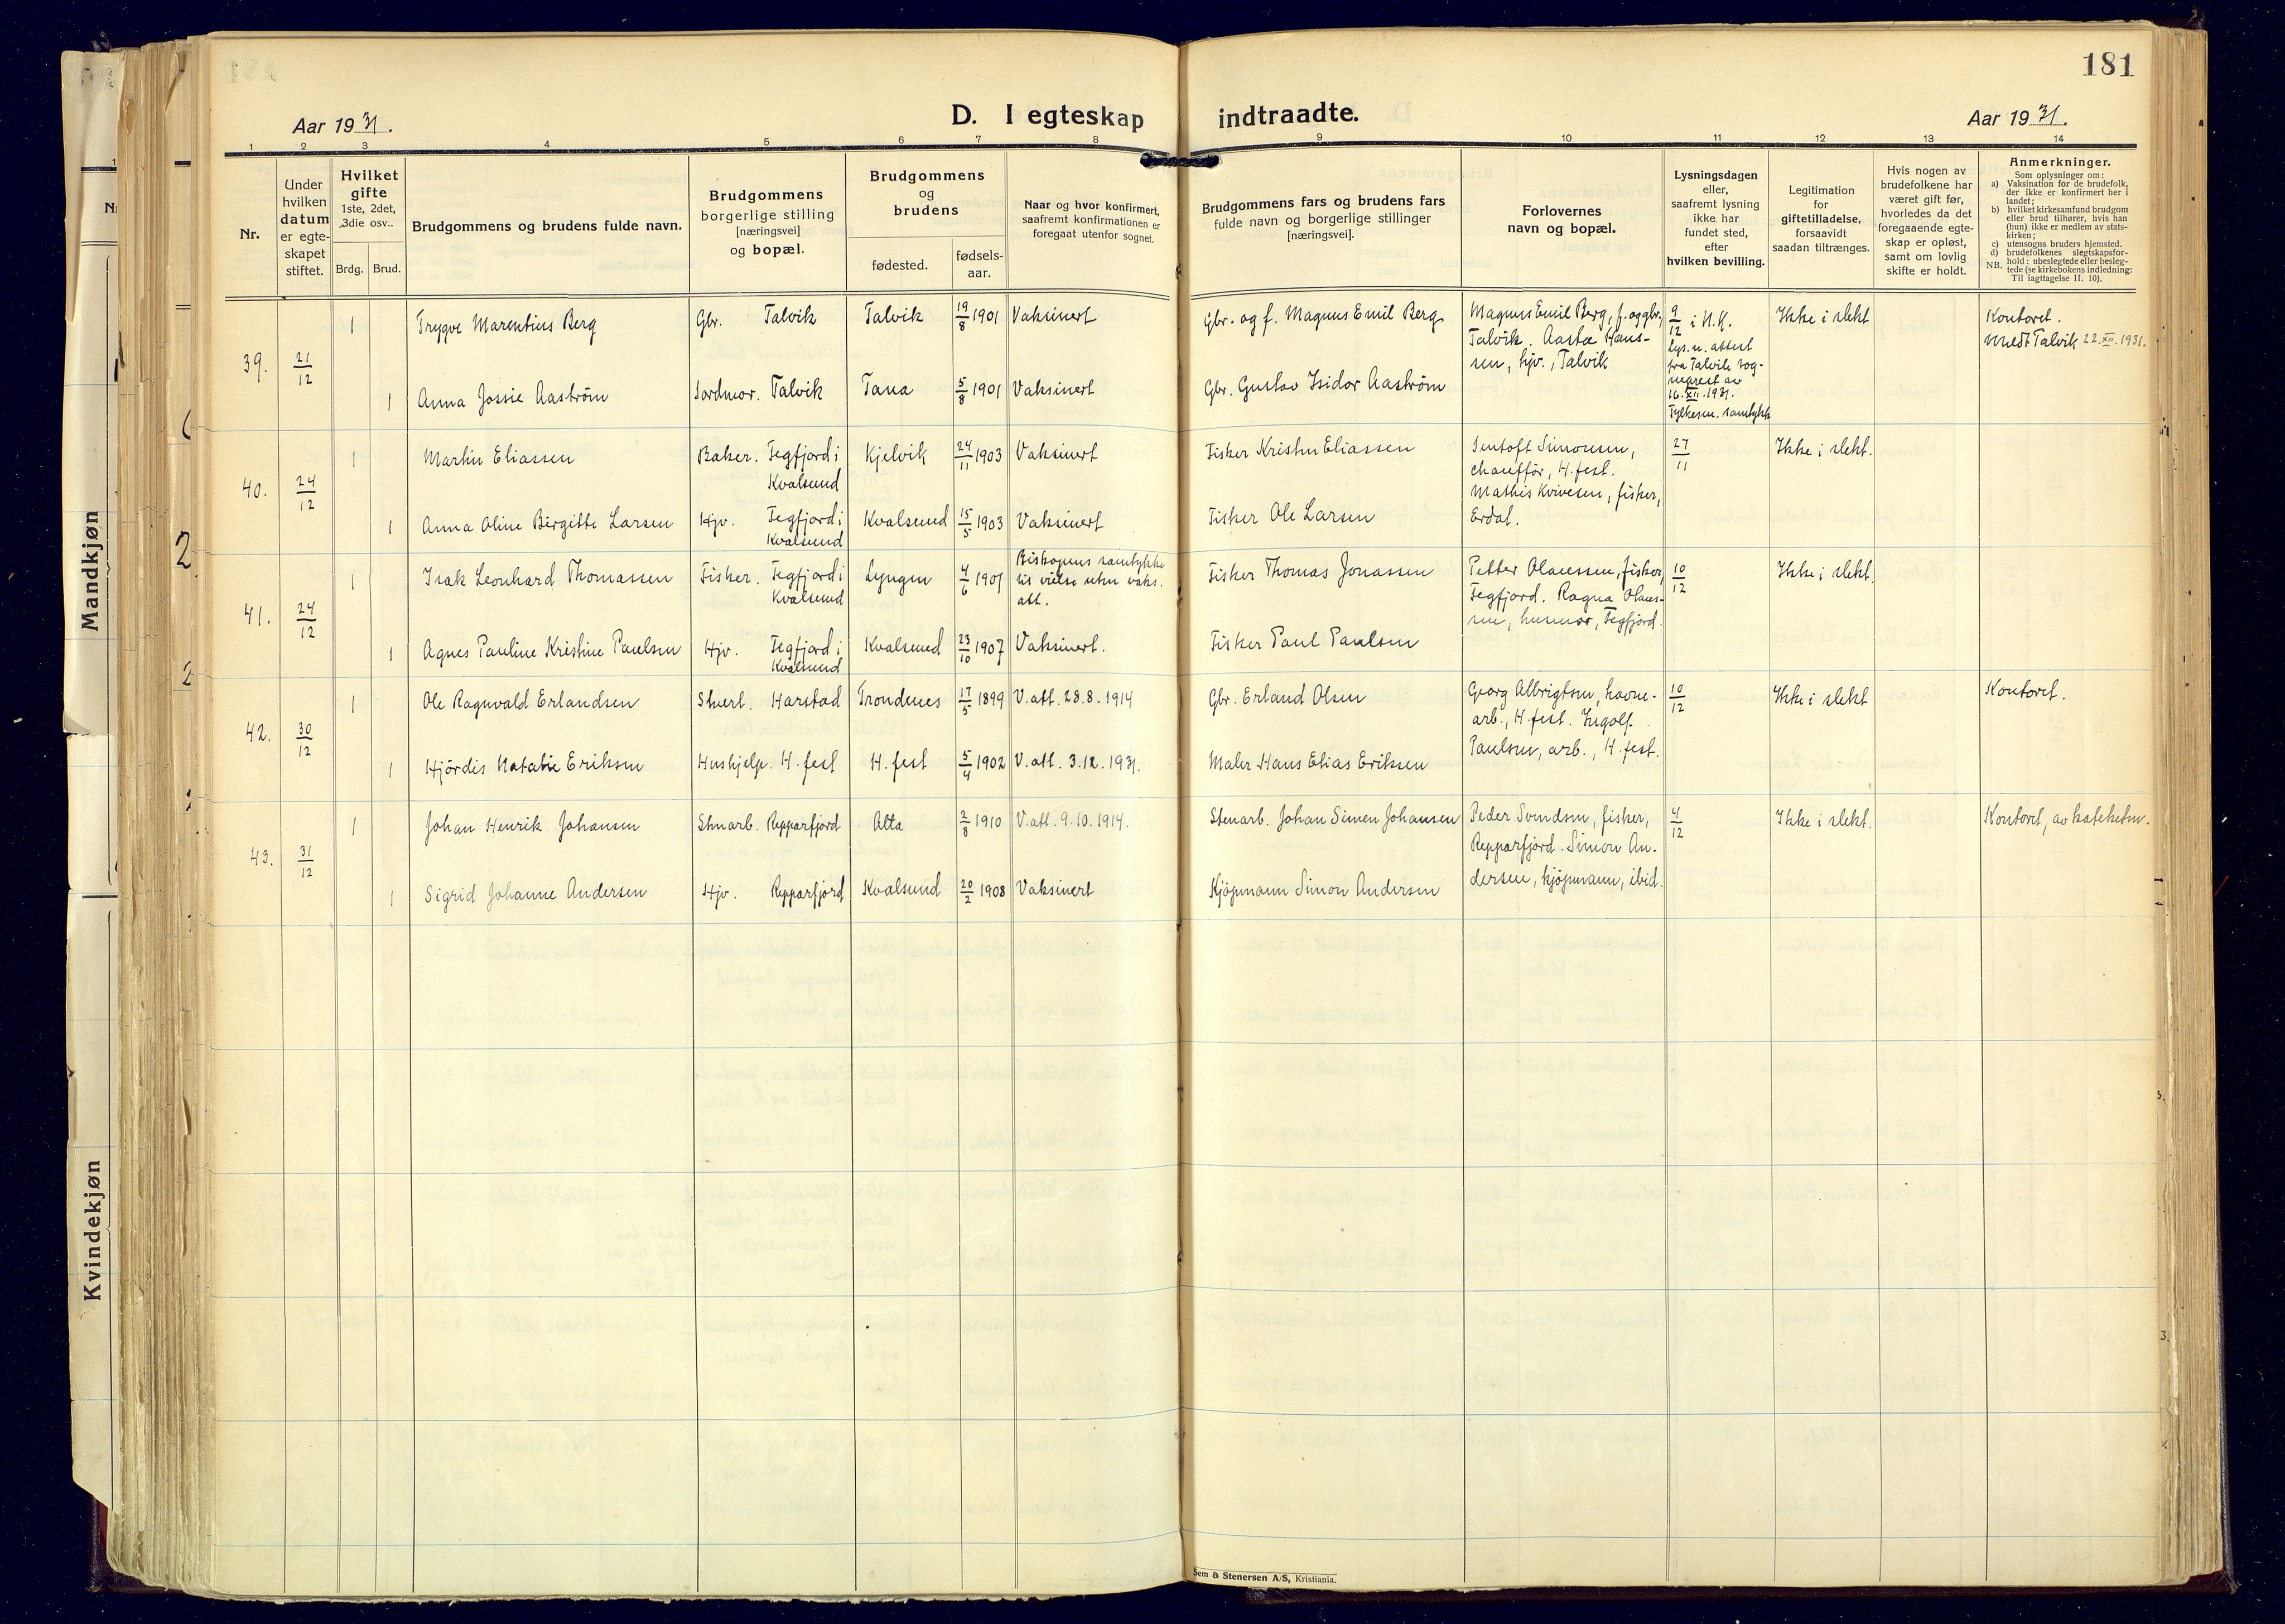 181
Aar 1931.
D. I egteskap indtraadte.
Aar 1931.
1 2 3 4 5 6 7 8 9 10 11 12 13 14
Nr.
Under
hvilken
datum
er egte-
skapet
stiftet.
Hvilket
gifte
1ste, 2det,
3die osv..
Brdg. Brud.
Brudgommens og brudens fulde navn.
Brudgommens
borgerlige stilling
[næringsvei]
og bopæl.
Brudgommens
og
brudens
fødested.
fødsels-
aar.
Naar og hvor konfirmert,
saafremt konfirmationen er
foregaat utenfor sognet.
Brudgommens fars og brudens fars
fulde navn og borgerlige stillinger
[næringsvei].
Forlovernes
navn og bopæl.
Lysningsdagen
eller,
saafremt lysning
ikke har
fundet sted,
efter
hvilken bevilling.
Legitimation
for
giftetilladelse,
forsaavidt
saadan tiltrænges.
Hvis nogen av
brudefolkene har
været gift før,
hvorledes da det
foregaaende egte-
skap er opløst,
samt om lovlig
skifte er holdt.
Anmerkninger.
Som oplysninger om:
a) Vaksination for de brudefolk,
der ikke er konfirmert her i
landet;
b) hvilket kirkesamfund brudgom
eller brud tilhører, hvis han
(hun) ikke er medlem av stats-
kirken;
c) utensogns bruders hjemsted.
d) brudefolkenes slegtskapsfor-
hold: ubeslegtede eller besleg-
NB. tede (se kirkebokens indledning:
Til iagttagelse II. 10).
39. 21/12
1 Trygve Marentius Berg Gbr. Talvik Talvik 19/8 1901 Vaksinert Gbr. og f. Magnus Emil Berg
1 Anna Jossie Aaström Jordmor. Talvik Tana 5/8 1901 Vaksinert Gbr. Gustav Isidor Aaström
Magnus Emil Berg, f. og gbr.,
Talvik. Aasta Hans-
sen, hjv., Talvik
9/12 i H.K.
Lys. u. attest
fra Talvik sog-
neprest av
16.XII.1931.
Fylkesm. samtykke
Ikke i slekt
Kontoret.
Meldt Talvik 22.XII.1931.
40. 24/12
1 Martin Eliassen Baker. Fegfjord i
Kvalsund Kjelvik 24/11 1903 Vaksinert Fisker Kristen Eliassen
1 Anna Oline Birgitte Larsen Hjv. Fegfjord i
Kvalsund Kvalsund 15/5 1903 Vaksinert Fisker Ole Larsen
Simonsen,
chaufför, H.fest.
Mathis Kvivesen, fisker,
Erdal.
27/11
Ikke i slekt.
41. 24/12
1 Isak Leonhard Thomassen Fisker. Fegfjord i
Kvalsund Lyngen 4/6 1901 Biskopens samtykke
til vielse uten vaks.
att. Fisker Thomas Jonassen
1 Agnes Pauline Kristine Paulsen Hjv. Fegfjord i
Kvalsund Kvalsund 23/10 1907 Vaksinert. Fisker Paul Paulsen
Petter Olaussen, fisker,
Fegfjord. Ragna Olaus-
sen, husmor, Fegfjord.
10/12
Ikke i slekt.
42. 30/12
1 Ole Ragnvald Erlandsen Stuert. Harstad Trondenes 17/5 1899 V. att. 28.8.1914 Gbr. Erland Olsen
1 Hjördis Natalie Eriksen Hushjelp. H.fest H.fest 5/4 1902 V. att. 3.12.1931. Maler Hans Elias Eriksen
Georg Albrigtsen, havne-
arb., H.fest. Ingolf
Paulsen, arb., H.fest.
10/12
Ikke i slekt
Kontoret.
43. 31/12
1 Johan Henrik Johansen Stenarb. Repparfjord Alta 2/8 1910 V. att. 9.10.1914. Stenarb. Johan Simen Johansen
1 Sigrid Johanne Andersen Hjv. Repparfjord Kvalsund 20/2 1908 Vaksinert Kjöpmann Simon Andersen
Peder Svendsen, fisker,
Repparfjord. Simon An-
dersen, kjöpmann, ibid.
4/12
Ikke i slekt.
Kontoret, av kateketen.
Sem & Stenersen A/S, Kristiania.
Mandkjøn
Kvindekjøn